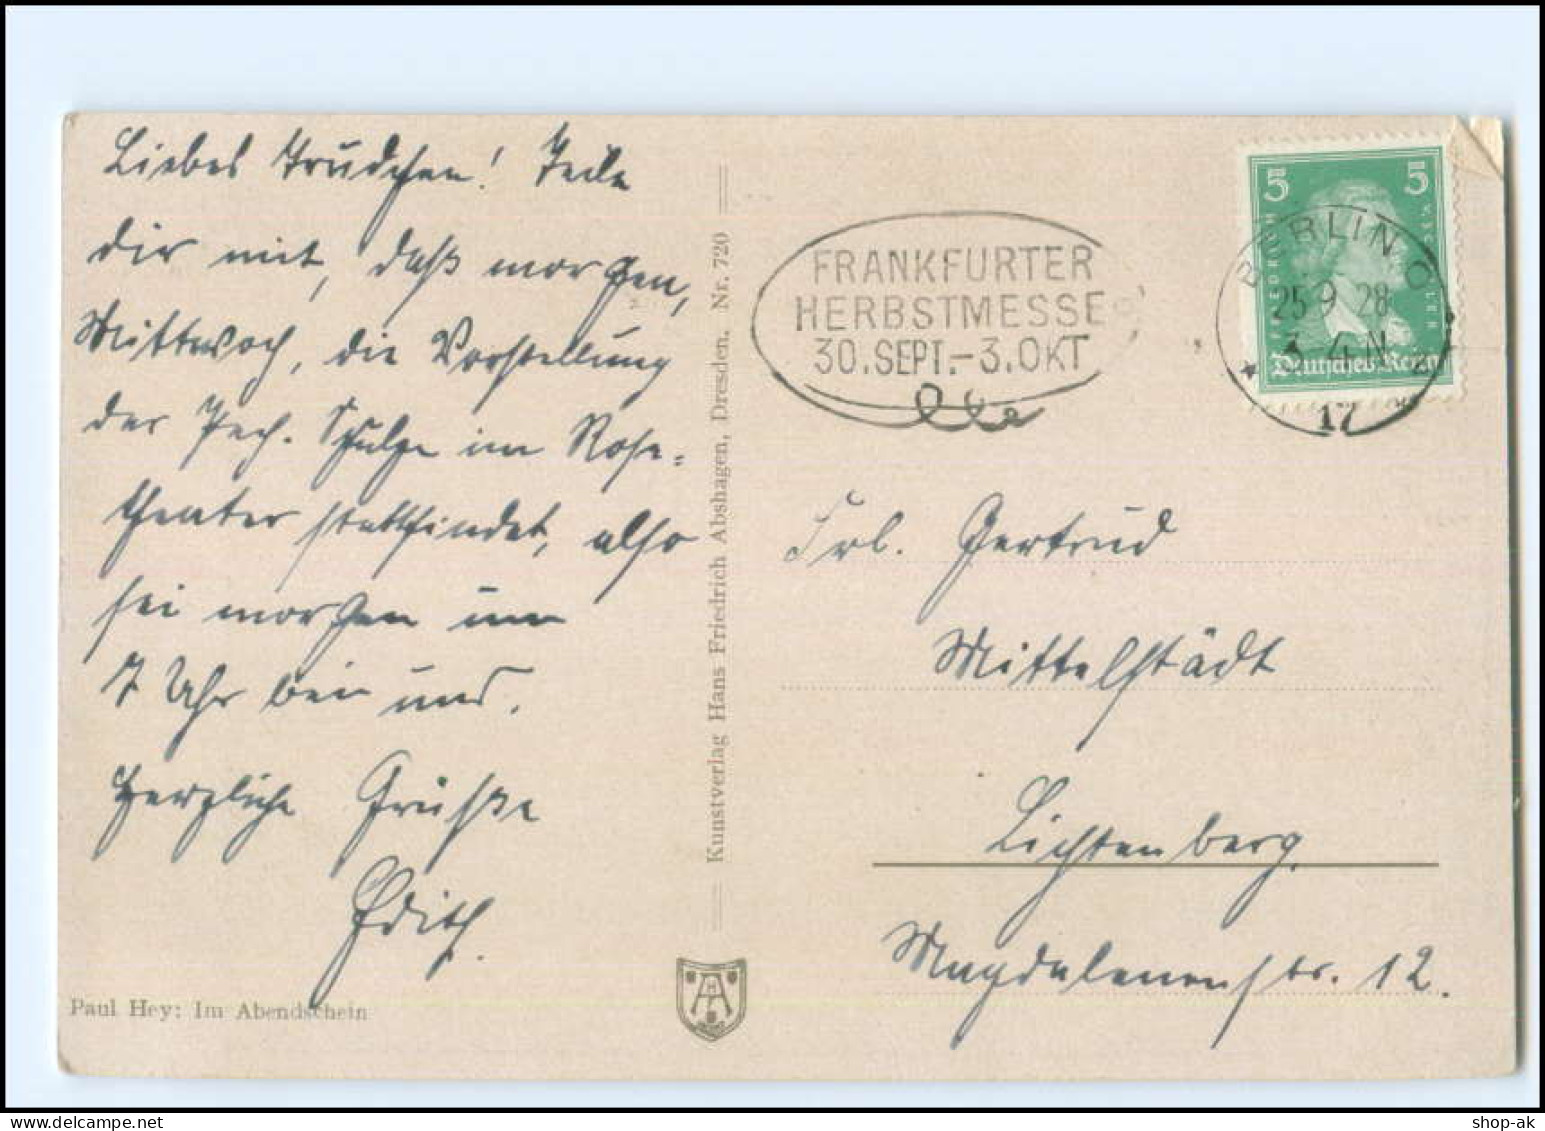 Liebes Trudchen! Teile
dir mit, daß morgen,
Mittwoch, die Vorstellung
der Pech. Schulze im Rose-
theater stattfindet, also
sei morgen um
7 Uhr bei uns.
Herzliche Grüße
Edith.
Paul Hey: Im Abendschein
Kunstverlag Hans Friedrich Abshagen, Dresden. Nr. 720
FRANKFURTER
HERBSTMESSE
30. SEPT. - 3. OKT
5 5
Deutsches Reich
BERLIN O
25 9 28
3-4 N
17
Frl. Gertrud
Mittelstädt
Lichtenberg.
Magdalenenstr. 12.
shop-ak